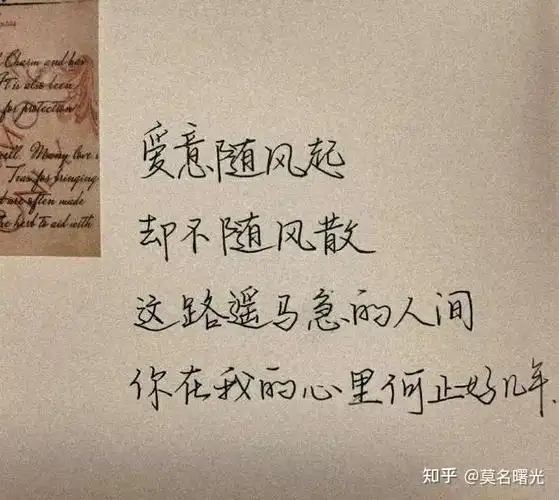 Charm and
It is also been
for protection
will. Many love
Teas for bringing
are often made
herb to aid with
爱意随风起
却不随风散
这路遥马急的人间
你在我的心里何止好几年.
知乎 @莫名曙光